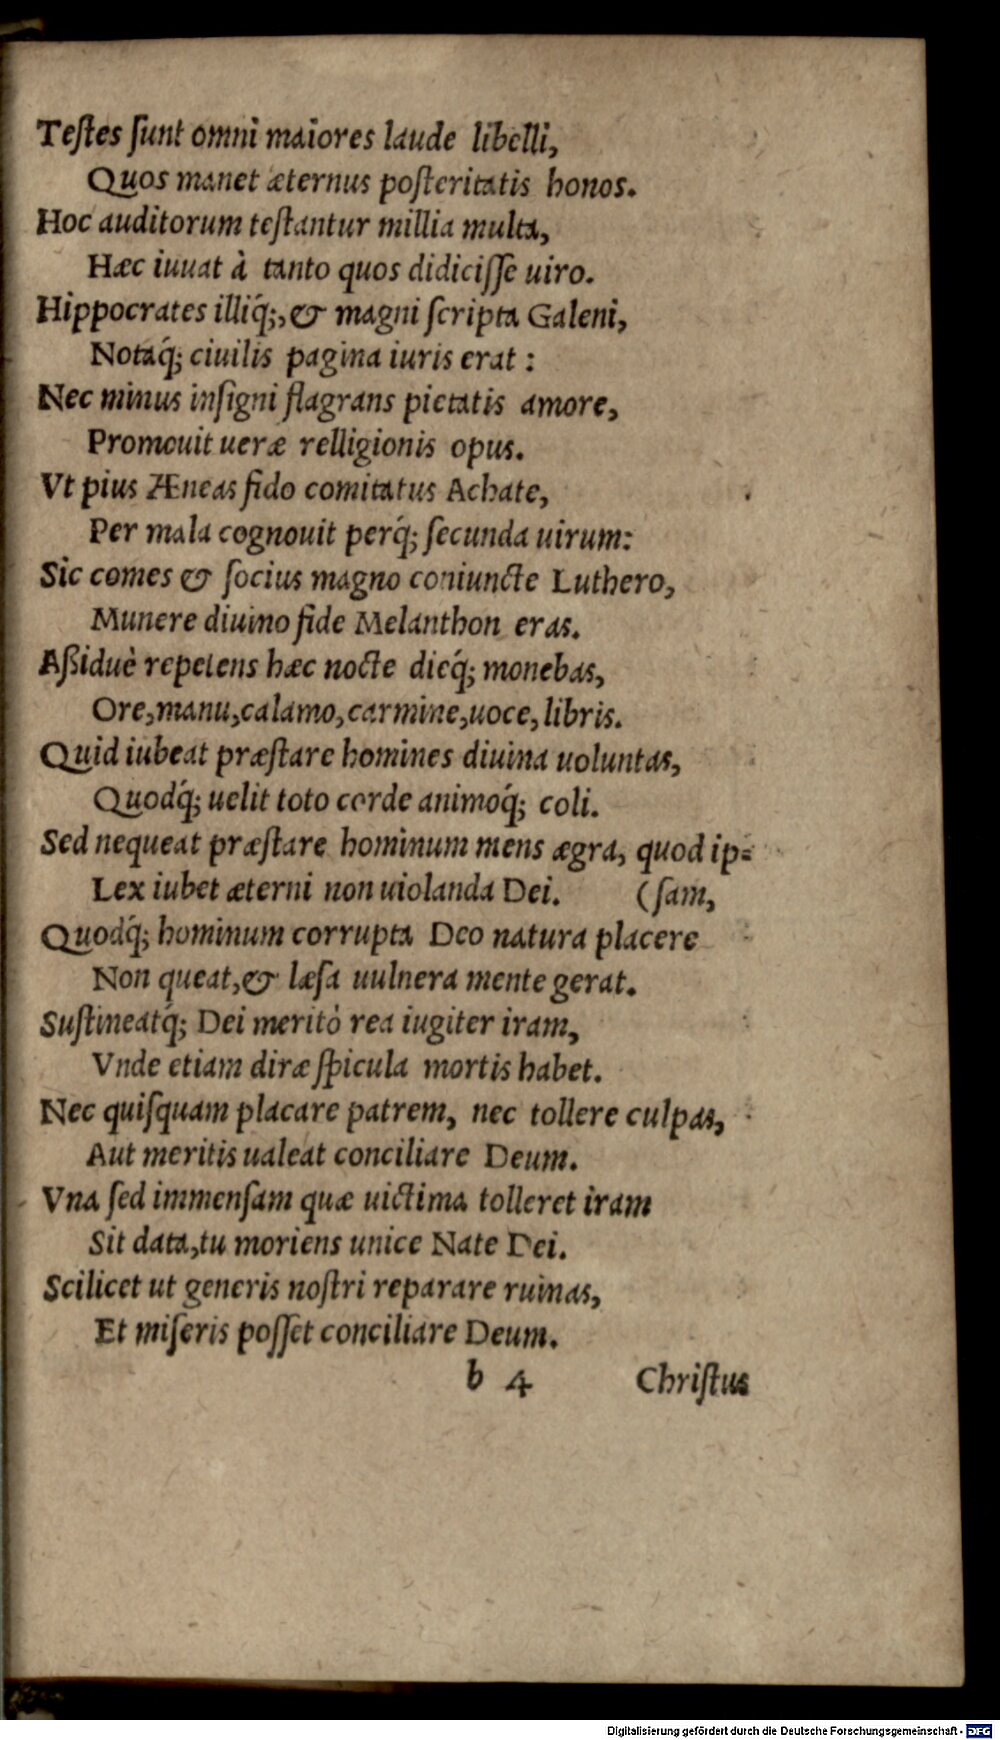 Teſtes ſunt omni maiores laude libelli,
Quos manet æternus poſteritatis honos.
Hoc auditorum teſtantur millia multa,
Hæc iuuat à tanto quos didiciſſe uiro.
Hippocrates illiq́;, & magni ſcripta Galeni,
Notaq́; ciuilis pagina iuris erat :
Nec minus inſigni flagrans pietatis amore,
Promouit ueræ relligionis opus.
Vt pius Æneas fido comitatus Achate,
Per mala cognouit perq́; ſecunda uirum:
Sic comes & ſocius magno coniuncte Luthero,
Munere diuino fide Melanthon eras.
Aßiduè repetens hæc nocte dieq́; monebas,
Ore, manu, calamo, carmine, uoce, libris.
Quid iubeat præſtare homines diuina uoluntas,
Quodq́; uelit toto corde animoq́; coli.
Sed nequeat præſtare hominum mens ægra, quod ip=
Lex iubet æterni non uiolanda Dei. (ſam,
Quodq́; hominum corrupta Deo natura placere
Non queat, & læſa uulnera mente gerat.
Suſtineatq́; Dei meritò rea iugiter iram,
Vnde etiam diræ ſpicula mortis habet.
Nec quiſquam placare patrem, nec tollere culpas,
Aut meritis ualeat conciliare Deum.
Vna ſed immenſam quæ uictima tolleret iram
Sit data, tu moriens unice Nate Dei.
Scilicet ut generis noſtri reparare ruinas,
Et miſeris poſſet conciliare Deum.
b 4 Chriſtus
Digitalisierung gefördert durch die Deutsche Forschungsgemeinschaft - DFG